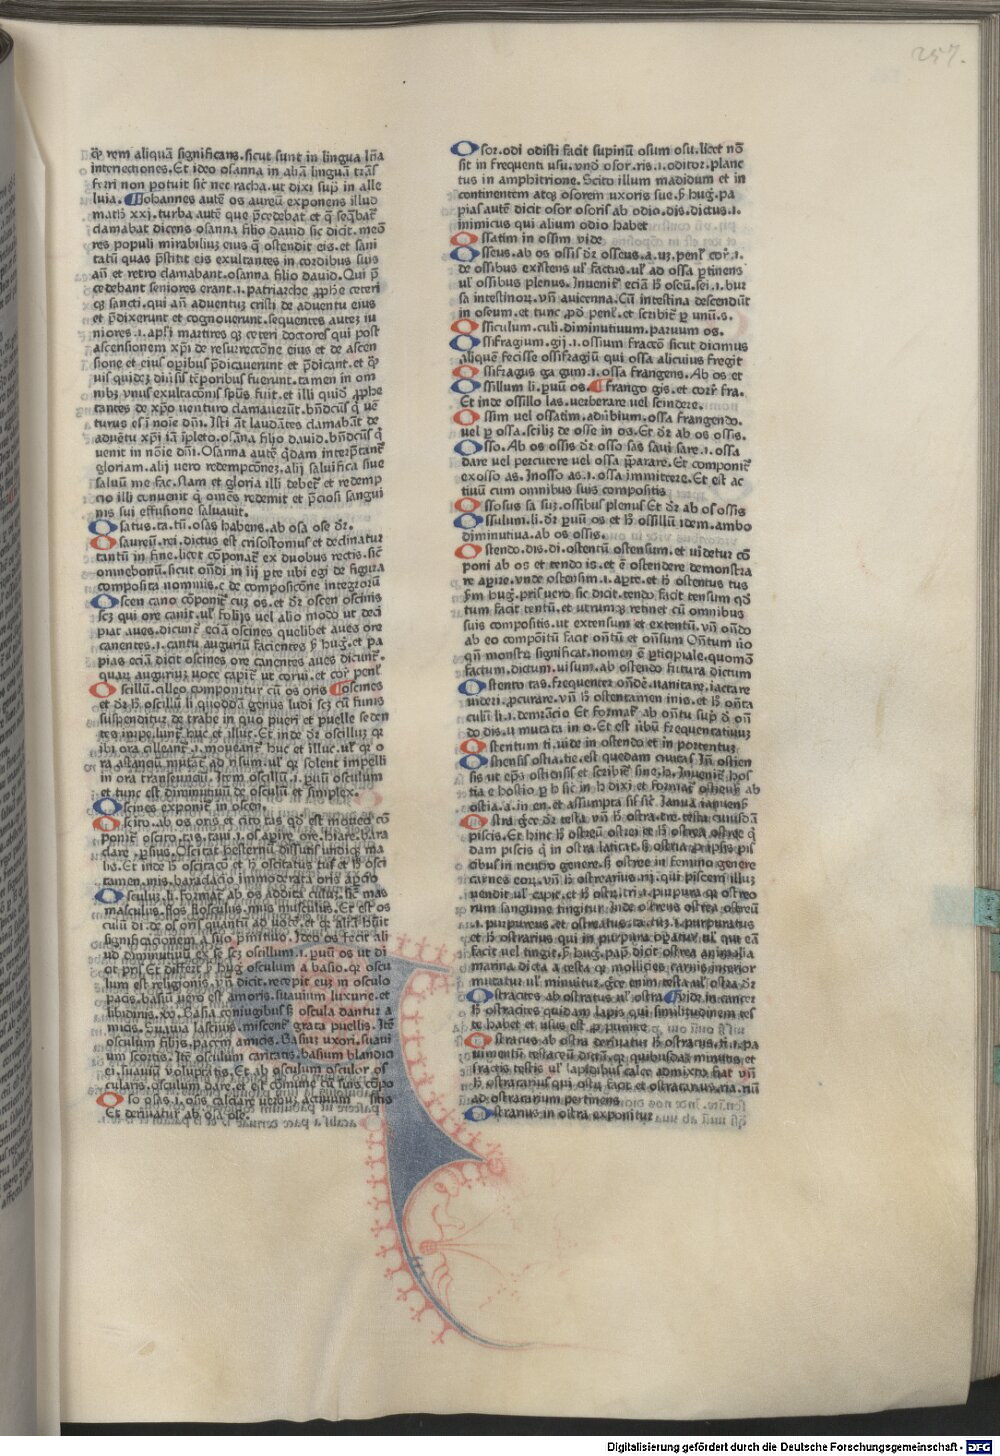 257.
rem aliquā significans. sicut sunt in lingua
interiectiones. Et ideo osanna in aliā linguā
ferri non potuit sic̄ nec racha. ut dixi sup̄ in alle
luia. Johannes autē os aureū exponens illud
mathi xxj. turba autē que p̄cedebat et q̄
clamabat dicens osanna filio dauid sic dicit.
res populi mirabiliuꝫ eius q̄ ostendit eis. et sani
tatū quas p̄stitit eis exultantes in cordibus suis
añ et retro clamabant. osanna filio dauid. Qui p̄
cedebant seniores erant .i. patriarche ꝓphe ceteri
qꝫ sancti. qui añ aduentuꝫ cristi de aduentu eius
et p̄dixerunt et cognouerunt. sequentes auteꝫ iu
niores .i. apl̄i martires qꝫ ceteri doctores qui post
ascensionem xp̄i de resurreccōne eius et de ascen
sione et eius oꝑibus p̄dicauerunt et p̄dicant. et
uis quideꝫ diūsis tēporibus fuerunt. tamen in om
nibꝫ vnus exultacōnis sp̄us fuit. et illi quidē ꝓphe
tantes de xp̄o venturo clamauerūt. bn̄dictus q̄ uē
turus est ī noīe dn̄i. Isti aūt laudātes clamabāt de
aduētu xp̄i iā īpleto. osāna filio dauid. bn̄dictus q̄
uenit in nōie dn̄i. Osanna autē q̄dam interp̄tant̄
gloriam. alij uero redempcōneꝫ. alij saluifica siue
saluū me fac. nam et gloria illi debet̄ et redemp
cio illi conuenit q̄ omēs redemit et p̄ciosi sangui
nis sui effusione saluauit.
Osatus. ta. tū. osas habens. ab osa ose dr̄.
Osaureū. rei. dictus est crisostomus et declinatur
tantū in fine. licet cōponat̄ ex duobus rectis. sic̄
omnebonū. sicut ōndi in iij ꝑte ubi egi de figura
composita nominis. c de composicōne integrorū
Oscen cano cōponit̄ cuꝫ os. et dr̄ oscen oscinis
scꝫ qui ore canit. ul̄ folijs uel alio modo ut deci
piat aues. dicunt̄ eciā oscines quelibet aues ore
canentes .i. cantu auguriū facientes ẜm huḡ. et pa
pias eciā dicit oscines ore canentes aues dicunt̄.
quaꝝ auguriuꝫ uoce capit̄ ut corui. et cor̄ penl̄
Oscillū. cilleo componitur cū os oris oscines
et dr̄ hͦ oscillū li quoddā genus ludi scꝫ cū funis
suspenditur de trabe in quo pueri et puelle seden
tes impellunt̄ huc et illuc. Et inde dr̄ oscilluꝫ qꝛ
ibi ora cilleant̄ .i. moueant̄ huc et illuc. ul̄ qꝛ o
ra astanciū mutat̄ ad risum. ul̄ qꝛ solent impelli
in ora transeunciū. Item oscillū .i. ꝑuū osculum
et tunc est diminutiuū de osculū et simplex.
Oscines exponit̄ in oscen.
Oscito. ab os oris et cito tas qd̄ est moueo cō
ponit̄ oscito. tas. taui .i. os aꝑire. ore hiare. bara
clare. ꝑsius. Oscitat hesternū dissutis undiqꝫ ma
lis. Et inde hͨ oscitacō et hͨ oscitatus tus̄ et hͦ osci
tamen. mis. baraclacio immoderata oris apcīo
Osculuꝫ. li. format̄ ab os addita culuꝫ. sic̄ mas
masculus. flos flosculus. mus musculus. Et est os
culū di. de ol oris quantū ad uocē. et qꝛ aliā
significacionem a suo p̄mitiuo. Ideo os fecit ali
ud diminutiuū ex se scꝫ oscillum .i. ꝑuū os
 Et differt ẜm huḡ osculum a basio. qꝛ oscu
lum est religionis. vn̄ dicit. recepit eus in osculo
pacis. basiū uero est amoris. suauium luxurie. et
libidinis. Basia coniugibus sꝫ oscula dantur a
micis. Suauia lasciuis miscent̄ grata puellis. Itē
osculum filijs. pacem amicis. Basiuꝫ uxori. suaui
um scortis. Itē osculum caritatis. basium blandici
ei. suauiū voluptatis. Et ab osculum osculor os
cularis. osculum dare. et est comune cū suis cōpo
Oso osas .i. osis calciare uerbuꝫ actiuum sitis
Et deriuatur ab osa ose.
Osor. odi odisti facit supinū osum osu. licet nō
sit in frequenti usu. vnd̄ osor. ris .i. oditor. planc
tus in amphitrione. Scito illum madidum et in
continentem atqꝫ osorem uxoris sue. ẜm huḡ. pa
pias autē dicit osor osoris ab odio. dis. dictus .i.
inimicus qui alium odio habet
Ossatim in ossim vide
Osseus. ab os ossis dr̄ osseus. a. uꝫ. penl̄ cor̄ .i.
de ossibus existens ul̄ factus. ul̄ ad ossa ꝑtinens
ul̄ ossibus plenus. Inuenit̄ eciā hͦ oseū. sei .i. bur
sa intestinoꝝ. vn̄ auicenna. Cū intestina descendūt
in oseum. et tunc ꝓd. penl̄. et scribit̄ ꝑ unū .s.
Ossiculum. culi. diminutiuum. paruum os.
Ossifragium. gij .i. ossium fraccō sicut dicimus
aliquē fecisse ossifragiū qui ossa alicuius fregit
Ossifragus ga gum .i. ossa frangens. Ab os et
Ossillum li. ꝑuū os. frango gis. et cor̄ fra.
Et inde ossillo las. uerberare uel scindere.
Ossim uel ossatim. aduerbium. ossa frangendo.
uel ꝑ ossa. sciliꝫ de osse in os. Et dr̄ ab os ossis.
Osso. Ab os ossis dr̄ osso sas saui sare .i. ossa
dare uel percutere uel ossa p̄parare. Et componit̄
exosso as. Inosso as .i. ossa immittere. Et est ac
tiuū cum omnibus suis compositis
Ossosus sa suꝫ. ossibus plenus Et dr̄ ab os̄ ossis
Ossulum. li. dr̄ ꝑuū os et hͦ ossillū idem. ambo
diminutiua. ab os ossis.
Ostendo. dis. di. ostentū ostensum. et uidetur cō
poni ab os et tendo is. et ē ostendere demonstra
re aꝑire. vnde ostensim .i. aꝑte. et hͨ ostentus tus
ẜm huḡ. pris̄ uero sic dicit. tendo facit tensum qd̄
tum facit tentū. et utrumqꝫ retinet cū omnibus
suis compositis. ut extensum et extentū. vn̄ ōndo
ab eo compōitū facit ōntū et ōnsum Ōntum ūo
qn̄ monstrꝫ significat. nomen ē ꝑticipiale. quomō
factum. dictum. uisum. ab ostendo futura dictum
Ostento tas. frequenter ōndē. uanitare. iactare
uideri. ꝓcurare. vn̄ hͦ ostentamen inis. et hͦ ōnta
culū li .i. demr̄acio Et format̄ ab ōntu sup̄ ōn
do dis. u mutata in o. Et est ūbū frequentatiuuꝫ
Ostentum ti. uide in ostendo et in portentuꝫ
Osthensis ostia. tie. est quedam ciuitas In̄ ostien
sis ut ep̄s ostiensis et scribit̄ sine .h. Inuenit̄ hos
tia e hostio ꝑ h sic in h dixi et format̄ ab
ostia. a. in en. et assumpta sis̄ sic̄. Ianua ianuens̄
Ostra gͬce dr̄ testa vn̄ hͨ ostra. tre. testa cuiusdā
piscis. Et hinc hͦ ostreū ostrei et hͨ ostrea ostree q̄
dam piscis q̄ in ostra latitat. sꝫ ostria p̄ipsis pis
cibus in neutro genere. sꝫ ostree in femino genere
carnes eoꝝ. vn̄ hͨ ostrearius. rij. qui piscem illuꝫ
uendit ul̄ capit. et hͦ ostꝛ. tri .i. purpura qꝛ ostreo
rum sanguine tingitur. Inde ostreus ostrea ostreū
.i. purpureus. et ostreatus. ta. tuꝫ .i. purpuratus
et hͨ ostrarius qui in purpura oꝑatur ul̄ qui eā
facit uel tingit. ẜm huḡ. pap̄ dicit ostrea animalia
marina dicta a testa qꝛ mollicies carnis interior
mutatur ul̄ minuitur. gͬce enim testa ul̄ ostra dr̄
Ostracites ab ostratus ul̄ ostra uide in cancer
hͨ ostracites quidam lapis qui similitudinem tes
te habet et usus est ꝑ pumice
Ostracus ab ostra deriuatur hͨ ostracus. ti .i. pa
uimentū testaceū dictū. qꝛ quibusdaꝫ minutis et
fractis testis ul̄ lapidibus calce admixto fiat vn̄
hͨ ostracarius qui illū facit et ostracarius. ria. riū
ad ostracarium pertinens
Ostrarius in ostra exponitur
Digitalisierung gefördert durch die Deutsche Forschungsgemeinschaft - DFG